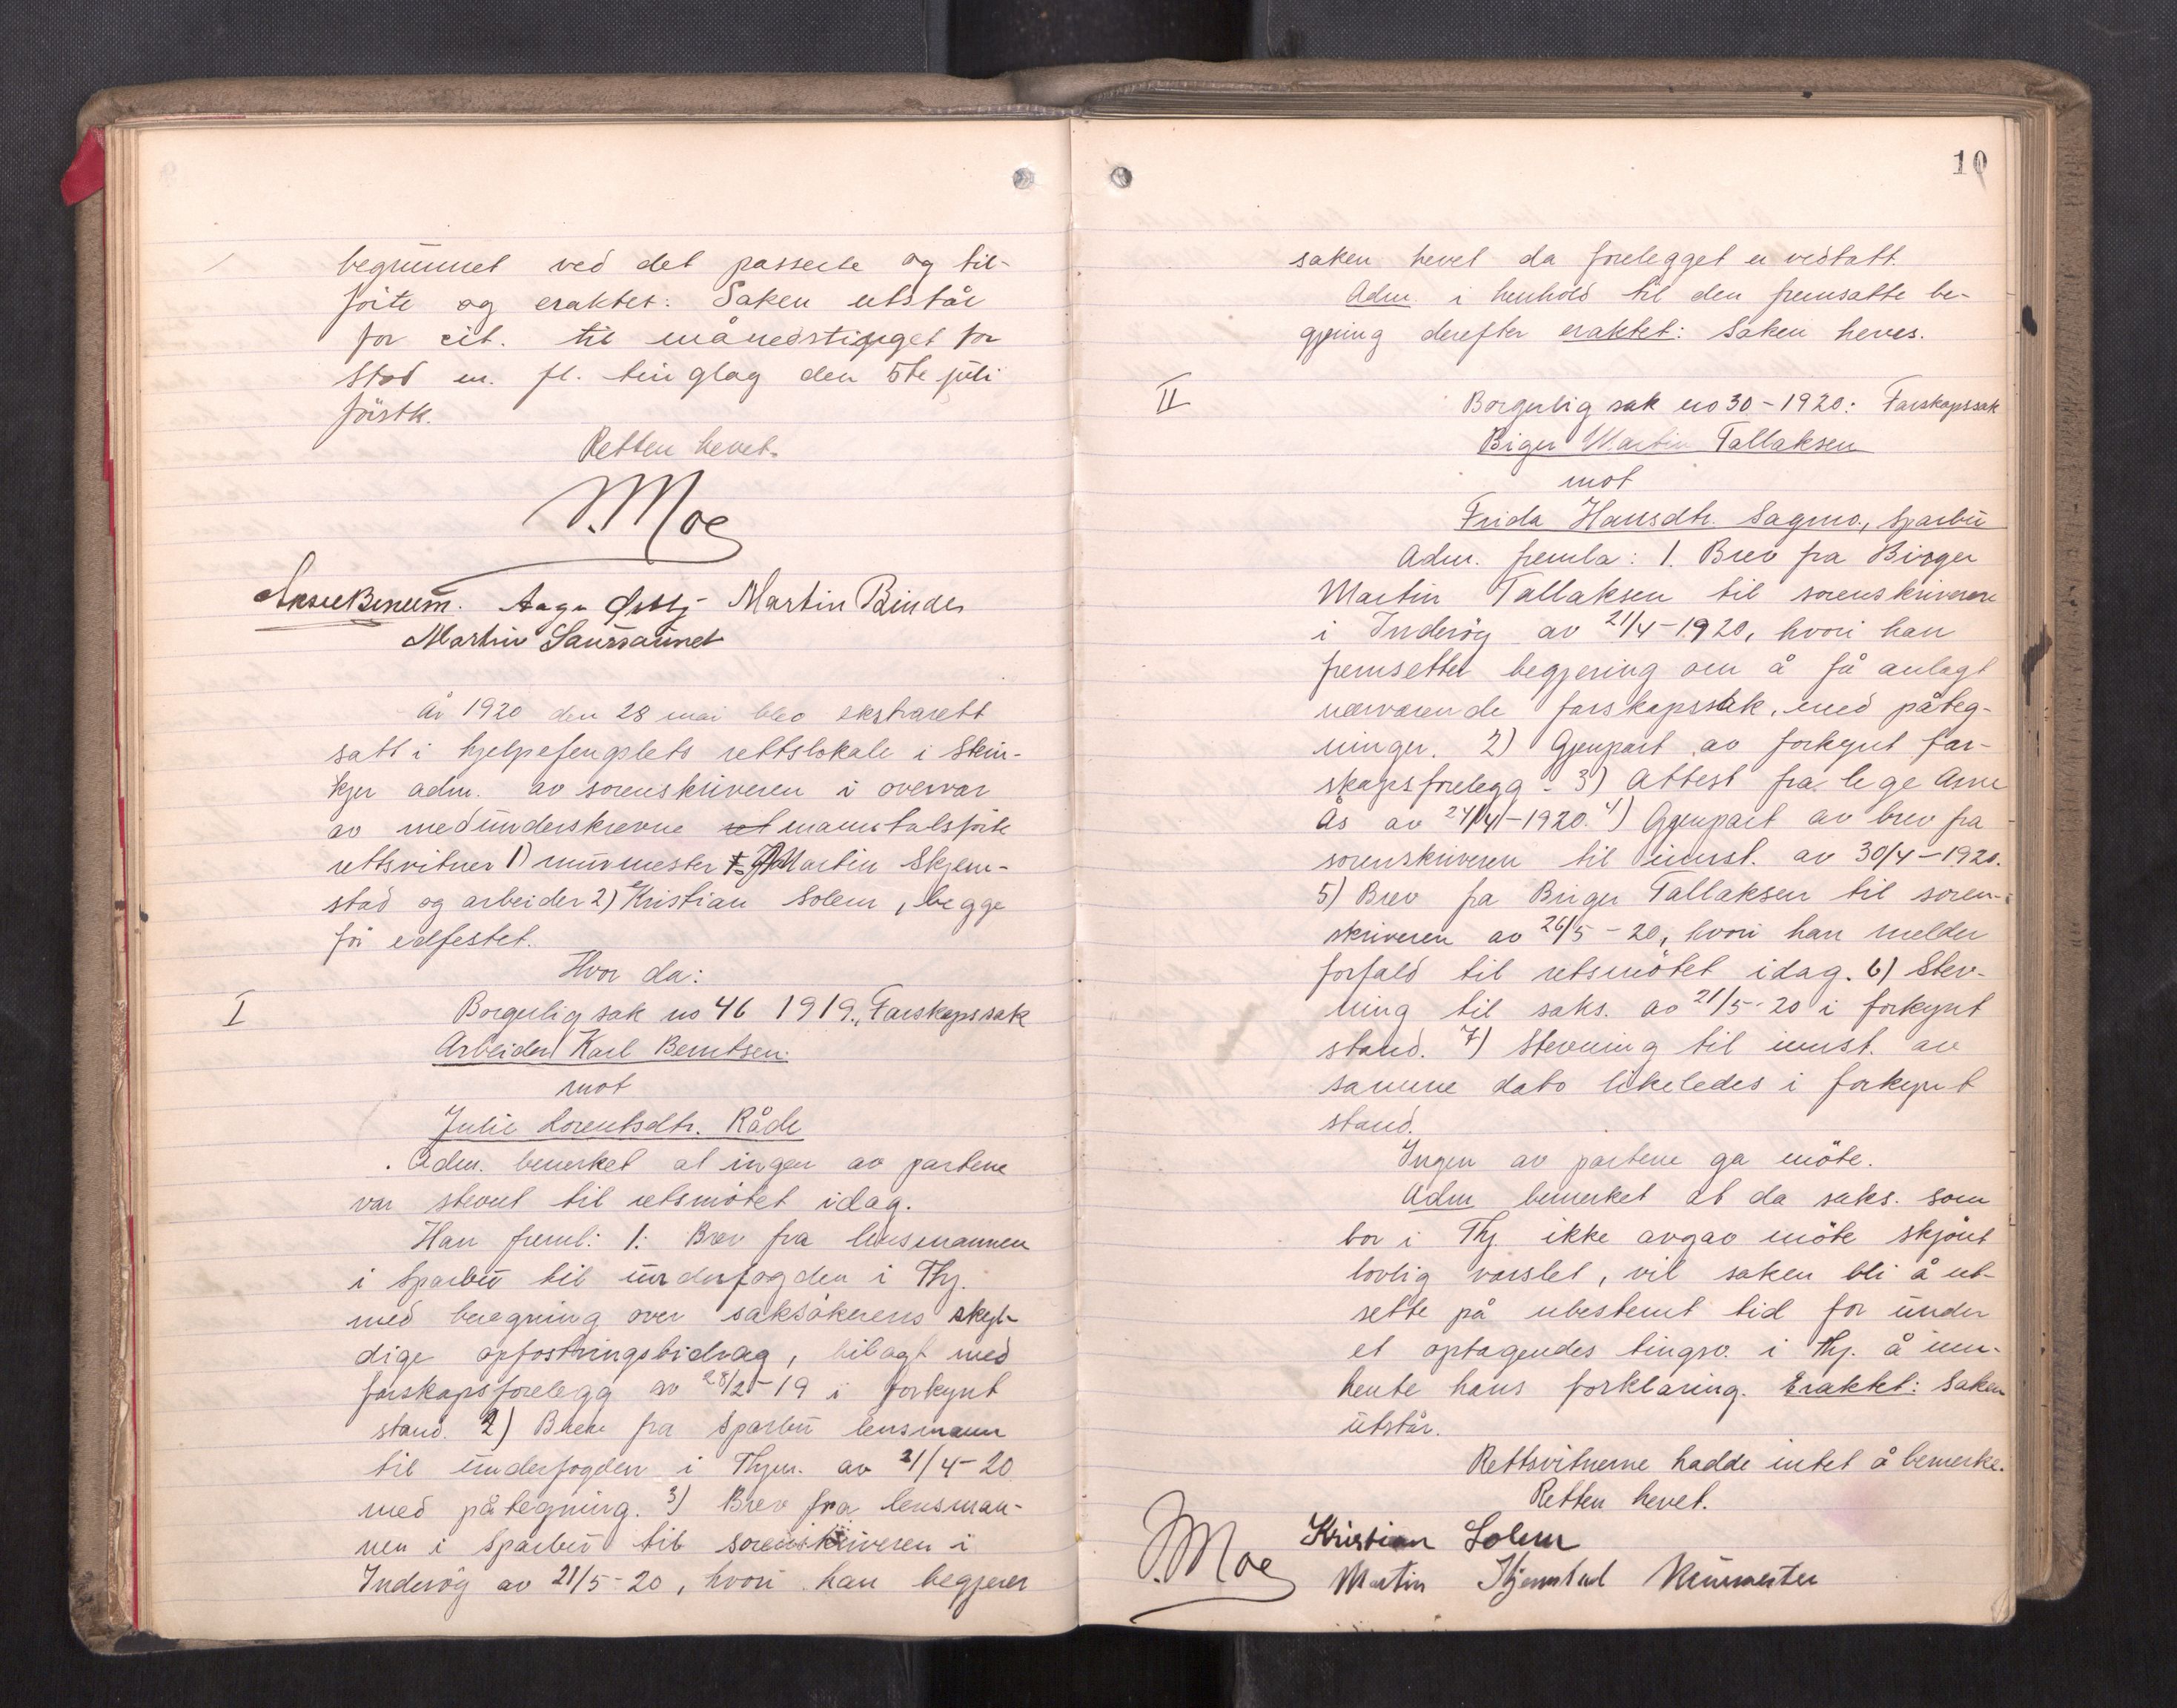 begrunnet ved det passerte og til-
förte og eraktet: Saken utstår
for cit. til månedstinget for
Stod m. fl. tinglag den 5te juli
förstk.
Retten hevet.
J. Moe
Aage Martin Binde
Martin Saursaunet
År 1920 den 28 mai blev ekstrarett
satt i hjelpefengslets rettslokale i Stein-
kjer adm. av sorenskriveren i overvær
av medunderskrevne manntalsförte
rettsvitner 1) murmester Martin Skjem-
stad og arbeider 2) Kristian Solem, begge
för edfestet.
Hvor da:
I
Borgerlig sak no 46 1919., Farskapssak
Arbeider Karl Berntsen
mot
Julie Lorentsdtr. Råde
Adm. bemerket at ingen av partene
var stevnt til retsmötet idag.
Han freml: 1: Brev fra lensmannen
i Sparbu til underfogden i Thj.
med beregning over saksökerens skyl-
dige opfostringsbidrag, bilagt med
farskapsforelegg av 28/2-19 i forkynt
stand. 2) Brev fra Sparbu lensmann
til underfogden i Thjm. av 21/4-20
med påtegning. 3) Brev fra lensman-
nen i Sparbu til sorenskriveren i
Inderöy av 21/5-20, hvori han begjerer
10
saken hevet da forelegget er vedtatt.
Adm. i henhold til den fremsatte be-
gjering derefter eraktet: Saken heves.
II
Borgerlig sak no 30-1920: Farskapssak
Biger Martin Tallaksen
mot
Frida Hansdtr. Sagmo, Sparbu
Adm. fremla: 1. Brev fra Birger
Martin Tallaksen til sorenskriveren
i Inderöy av 21/4-1920, hvori han
fremsetter begjering om å få anlagt
nærværende farskapssak, med påteg-
ninger. 2) Gjenpart av forkynt far-
skapsforelegg. 3) Attest fra lege Arne
Ås av 24/4-1920. 4) Gjenpart av brev fra
sorenskriveren til innst. av 30/4-1920.
5) Brev fra Birger Tallaksen til soren-
skriveren av 26/5-20, hvori han melder
forfald til retsmötet idag. 6) Stev-
ning til saks. av 21/5-20 i forkynt
stand. 7) Stevning til innst. av
samme dato likeledes i forkynt
stand.
Ingen av partene ga möte.
Adm bemerket at da saks. som
bor i Thj. ikke avgav möte skjönt
lovlig varslet, vil saken bli å ut-
sette på ubestemt tid for under
et optagendes tingsv. i Thj. å inn-
hente hans forklaring. Eraktet: Saken
utstår.
Rettsvitnerne hadde intet å bemerke.
Retten hevet.
J. Moe
Kristian Solem
Martin Skjemstad Murmester